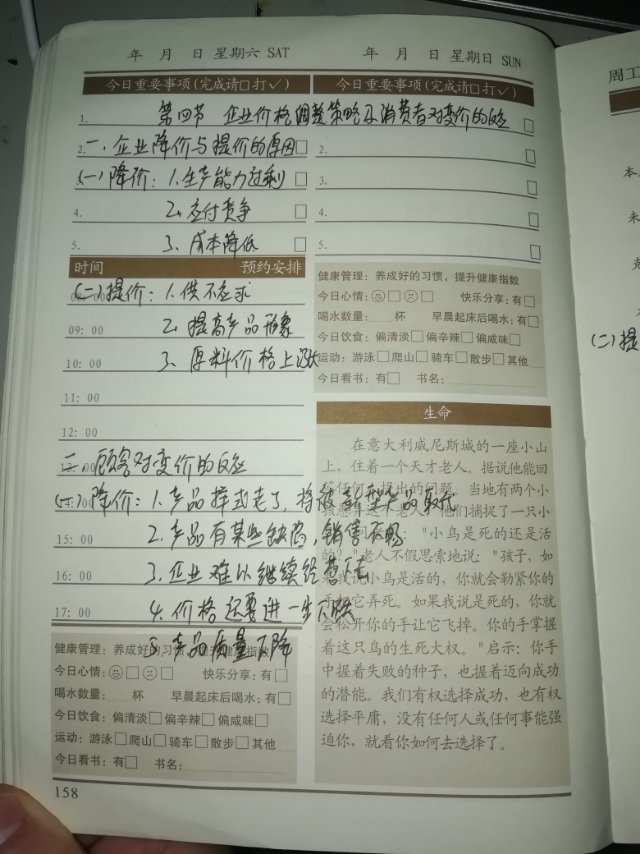 年 月 日 星期六 SAT
年 月 日 星期日 SUN
今日重要事项(完成请□打✓)
今日重要事项(完成请□打✓)
1. 第四节 企业价格调整策略及消费者对变价的反应
2. 一、企业降价与提价的原因
2.
(一)降价：1.生产能力过剩
3.
4. 2、应付竞争
4.
5. 3、成本降低
5.
时间 预约安排
(二)提价：1.供不应求
09: 00 2、提高产品形象
10: 00 3、原料价格上涨
11: 00
12: 00
健康管理：养成好的习惯，提升健康指数
今日心情： 快乐分享：有□
喝水数量： 杯 早晨起床后喝水：有□
今日饮食：偏清淡□偏辛辣□偏咸味□
运动：游泳□爬山□骑车□散步□其他
今日看书：有□ 书名：
二、顾客对变价的反应
降价：1.产品样式老了，将被新型产品取代
15: 00 2.产品有某些缺陷，销售不畅
16: 00 3.企业难以继续经营下去
17: 00 4.价格还要进一步下跌
5.产品质量下降
健康管理：养成好的习惯，提升健康指数
今日心情： 快乐分享：有□
喝水数量： 杯 早晨起床后喝水：有□
今日饮食：偏清淡□偏辛辣□偏咸味□
运动：游泳□爬山□骑车□散步□其他
今日看书：有□ 书名：
158
生命
在意大利威尼斯城的一座小山
上，住着一个天才老人。据说他能回
答任何人提出的问题。当地有两个小
他们捕捉了一只小
"小鸟是死的还是活
的？"老人不假思索地说："孩子，如
小鸟是活的，你就会勒紧你的
它弄死。如果我说是死的，你就
会松开你的手让它飞掉。你的手掌握
着这只鸟的生死大权。"启示：你手
中握着失败的种子，也握着迈向成功
的潜能。我们有权选择成功，也有权
选择平庸，没有任何人或任何事能强
迫你，就看你如何去选择了。
周工
本
未
(二)提